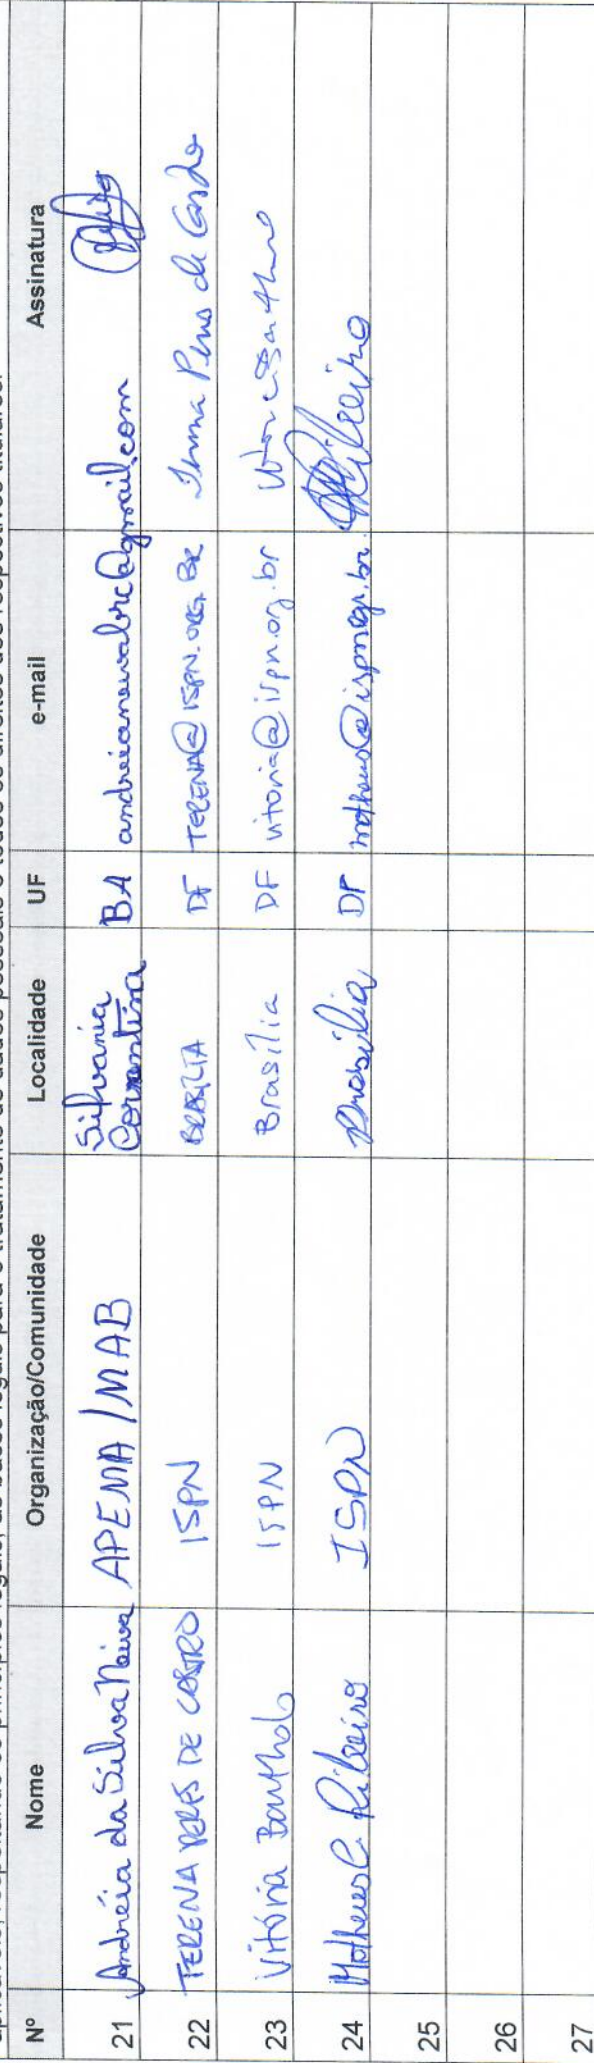 Nº Nome Organização/Comunidade Localidade UF e-mail Assinatura
21 Andréia da Silva Neiva APEMA/MAB Silvânia Correntina BA andreianeivabrc@gmail.com
22 TERENA PERES DE CASTRO ISPN BRASÍLIA DF TERENA@ISPN.ORG.BR
23 Vitória Bartholo ISPN Brasília DF vitoria@ispn.org.br
24 Matheus C. Ribeiro ISPN Brasília DF matheus@ispn.org.br Ribeiro
25
26
27